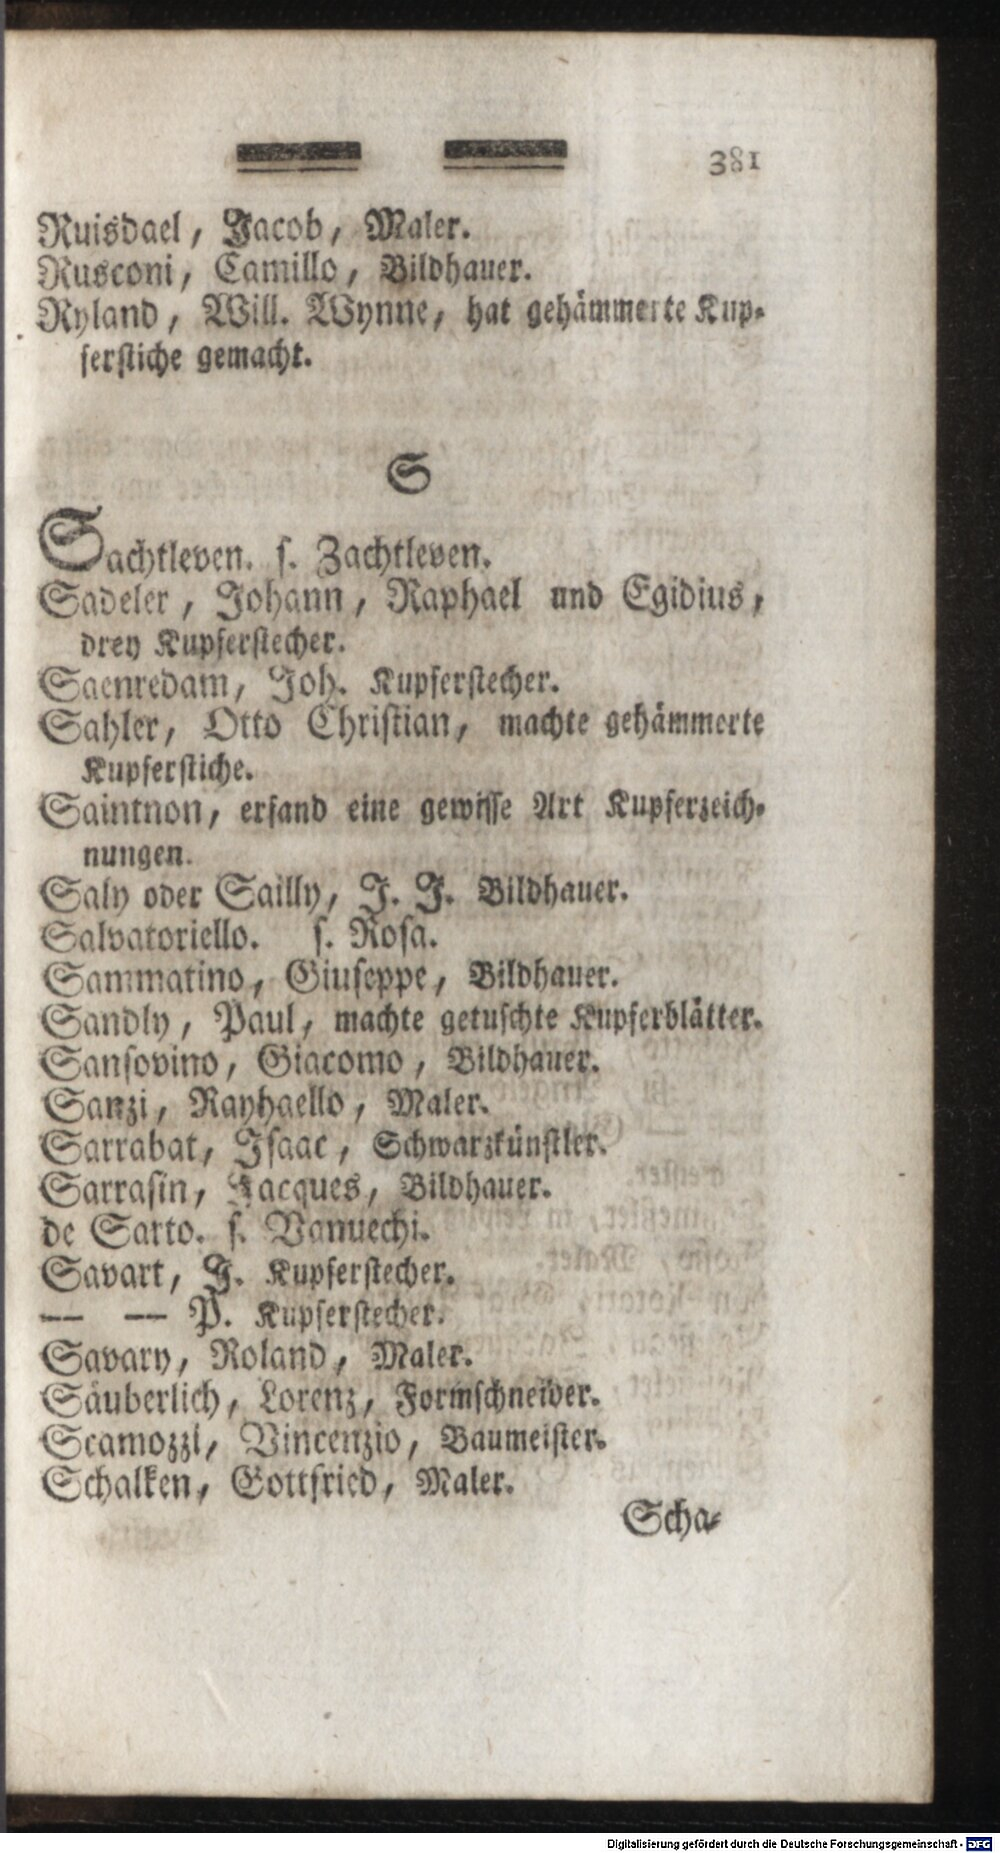 381
Ruisdael, Jacob, Maler.
Rusconi, Camillo, Bildhauer.
Ryland, Will. Wynne, hat gehämmerte Kup-
ferstiche gemacht.
S
Sachtleven. s. Zachtleven.
Sadeler, Johann, Raphael und Egidius,
drey Kupferstecher.
Saenredam, Joh. Kupferstecher.
Sahler, Otto Christian, machte gehämmerte
Kupferstiche.
Saintnon, erfand eine gewisse Art Kupferzeich-
nungen.
Saly oder Sailly, J. J. Bildhauer.
Salvatoriello. s. Rosa.
Sammatino, Giuseppe, Bildhauer.
Sandly, Paul, machte getuschte Kupferblätter.
Sansovino, Giacomo, Bildhauer.
Sanzi, Rayhaello, Maler.
Sarrabat, Isaac, Schwarzkünstler.
Sarrasin, Jacques, Bildhauer.
de Sarto. s. Vanuechi.
Savart, J. Kupferstecher.
— — P. Kupferstecher.
Savary, Roland, Maler.
Säuberlich, Lorenz, Formschneider.
Scamozzi, Vincenzio, Baumeister.
Schalken, Gottfried, Maler.
Scha-
Digitalisierung gefördert durch die Deutsche Forschungsgemeinschaft - DFG